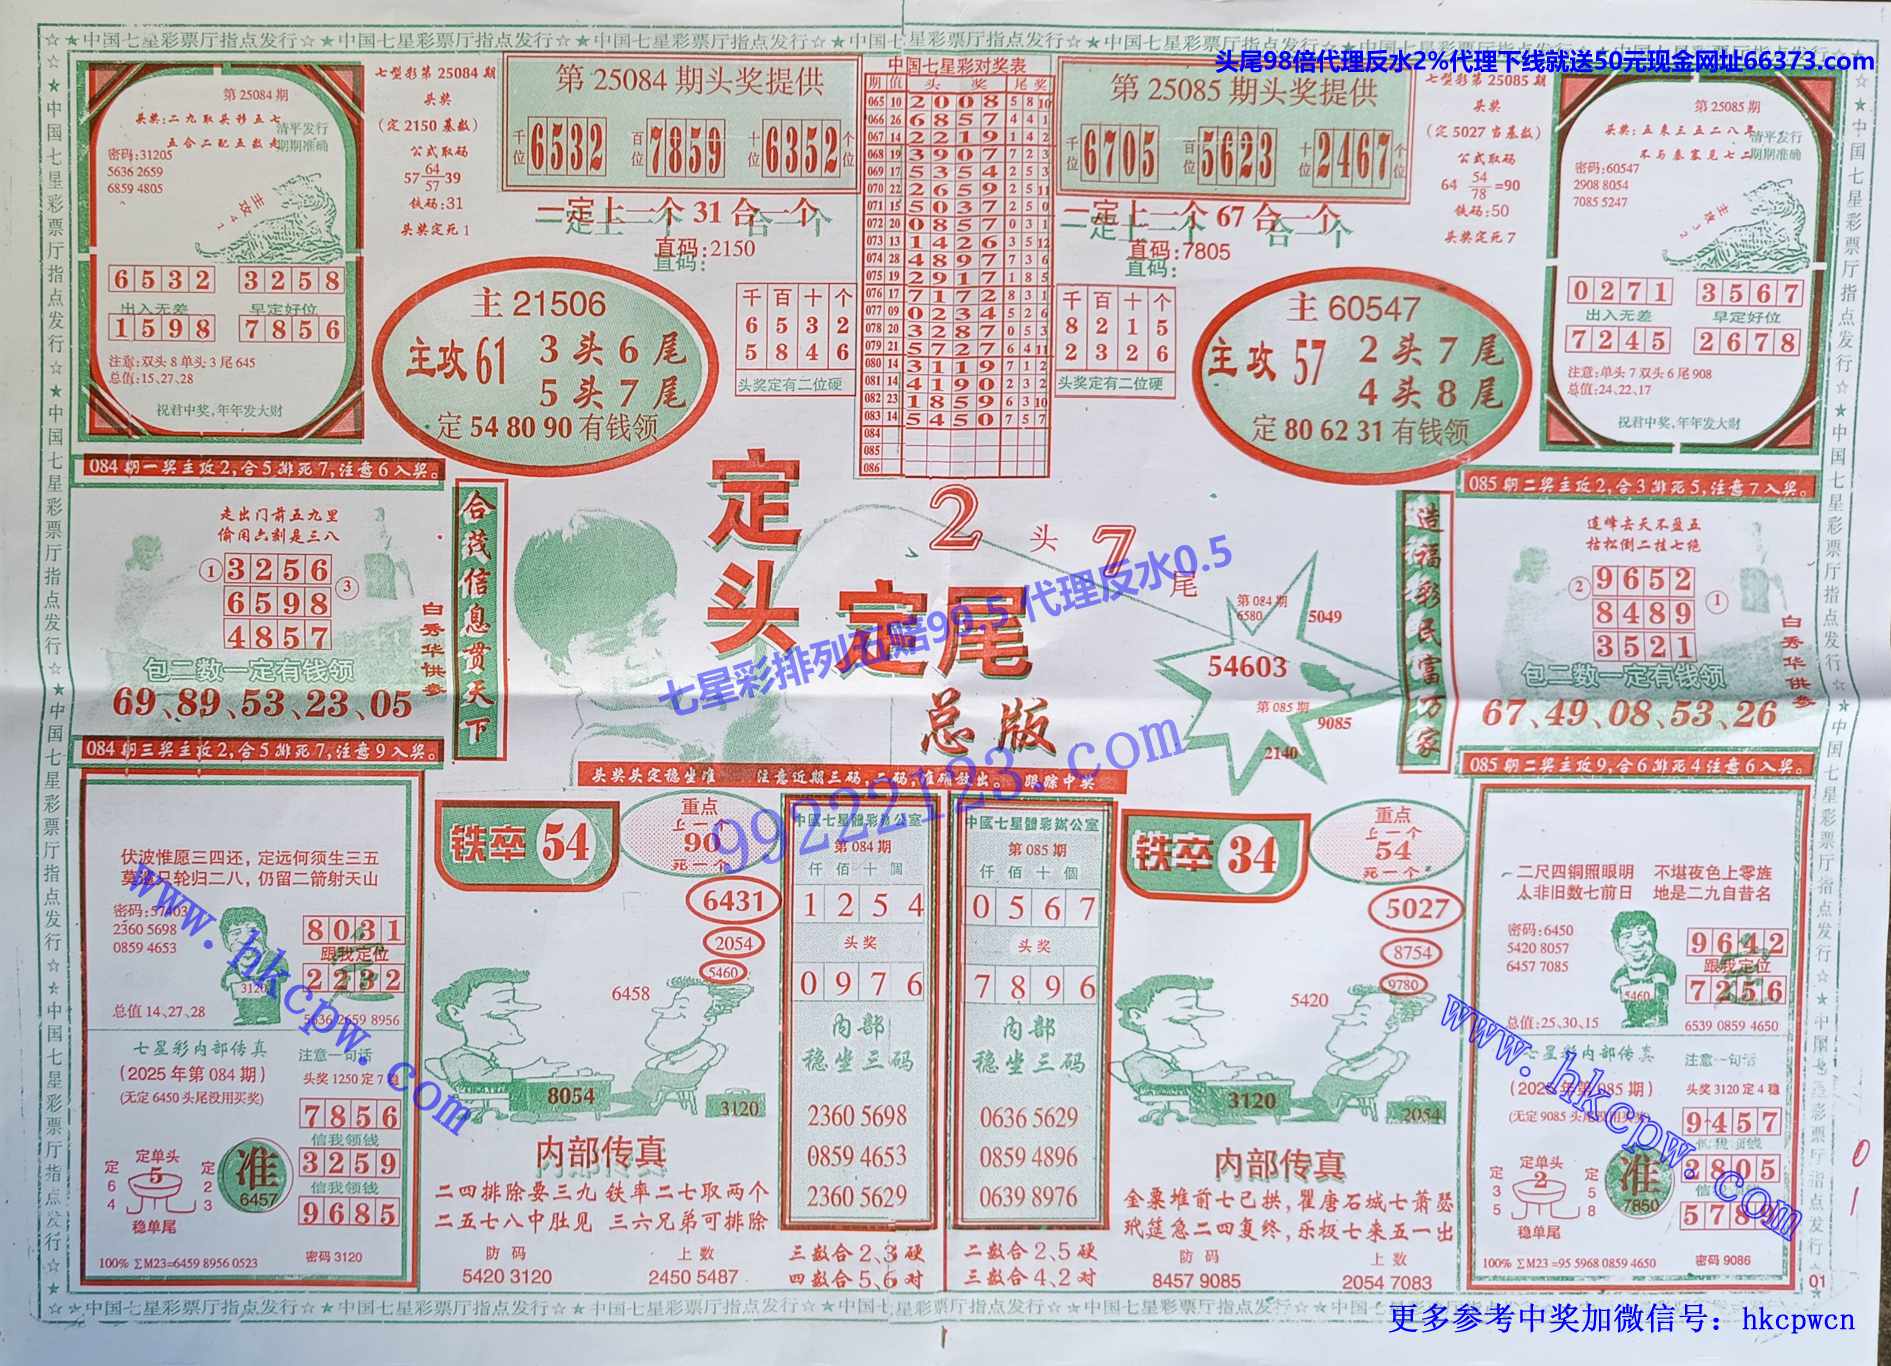 ☆★中国七星彩票厅指点发行☆★中国七星彩票厅指点发行☆★中国七星彩票厅指点发行☆★中国七星彩票厅指点发行☆★中国七星彩票厅指点发行
头尾98倍代理反水2%代理下线就送50元现金网址66373.com
第 25084 期
头奖:二九取头移五七
五合二配五数走
清平发行
期期准确
密码:31205
5636 2659
6859 4805
主攻 4 7
6532 3258
出入无差 早定好位
1598 7856
注意:双头 8 单头 3 尾 645
总值:15、27、28
祝君中奖,年年发大财
七型彩第 25084 期
头奖
(定 2150 基数)
公式取码
57 64/57 39
铁码:31
头奖定死 1
第 25084 期头奖提供
千位 6532 百位 7859 十位 6352 个位
一定上一个 31 合一个
直码:2150
直码:
主 21506
主攻 61
3 头 6 尾
5 头 7 尾
定 54 80 90 有钱领
千百十个
6532
5846
头奖定有二位硬
中国七星彩对奖表
期 值 头 奖 尾 奖
065 10 2008 5 8 10
066 26 6857 4 4 1
067 14 2219 1 4 2
068 19 3907 7 2 3
069 17 5354 2 5 3
070 22 2659 2 5 11
071 15 5037 2 5 0
072 20 0857 0 3 1
073 13 1426 3 5 12
074 28 4897 7 3 6
075 19 2917 1 8 5
076 17 7172 8 3 1
077 09 0234 5 2 6
078 20 3287 0 5 3
079 21 5727 6 4 11
080 14 3119 7 1 2
081 14 4190 2 3 2
082 23 1859 6 3 10
083 14 5450 7 5 7
084
085
086
第 25085 期头奖提供
千位 6705 百位 5623 十位 2467 个位
一定上一个 67 合一个
直码:7805
直码:
千百十个
8215
2326
头奖定有二位硬
主 60547
主攻 57
2 头 7 尾
4 头 8 尾
定 80 62 31 有钱领
七型彩第 25085 期
头奖
(定 5027 当基数)
公式取码
64 54/78 =90
铁码:50
头奖定死 7
第 25085 期
头奖:五来三五二八年
不与秦塞见七二
清平发行
期期准确
密码:60547
2908 8054
7085 5247
主攻 3 2
0271 3567
出入无差 早定好位
7245 2678
注意:单头 7 双头 6 尾 908
总值:24、22、17
祝君中奖,年年发大财
084 期一奖主攻 2,合 5 排死 7,注意 6 入奖。
走出门前五九里
偷闲六刻是三八
① 3256
6598 ③
4857
包二数一定有钱领
69、89、53、23、05
白秀华供参
084 期三奖主攻 2,合 5 排死 7,注意 9 入奖。
合茂信息贯天下
定头
2 头 7 尾
定尾
总版
七星彩排列五赔99.5 代理反水0.5
99222123.com
第 084 期
6580
5049
54603
第 085 期
9085
2140
造福彩民富万家
头奖头定稳坐准 注意近期三码,二码,准确放出。 跟踪中奖
085 期二奖主攻 2,合 3 排死 5,注意 7 入奖。
连峰去天不盈五
枯松倒二挂七绝
② 9652
8489 ①
3521
包二数一定有钱领
67、49、08、53、26
白秀华供参
085 期二奖主攻 9,合 6 排死 4 注意 6 入奖。
伏波惟愿三四还，定远何须生三五
莫遣只轮归二八，仍留二箭射天山
密码:57403
2360 5698
0859 4653
3120
8031
跟我定位
2232
总值 14、27、28
5636 2659 8956
七星彩内部传真
(2025 年第 084 期)
(无定 6450 头尾没用买奖)
注意一句话
头奖 1250 定 7 稳
7856
信我领钱
3259
信我领钱
9685
定 6 4
定单头
5
稳单尾
定 2 3
准
6457
100% ∑M23=6459 8956 0523
密码 3120
铁卒 54
重点
上一个
90
死一个
6431
2054
5460
6458
8054
3120
内部传真
二四排除要三九 铁率二七取两个
二五七八中肚见 三六兄弟可排除
防码 上数
5420 3120 2450 5487
中國七星體彩辦公室
第 084 期
仟佰十個
1254
头奖
0976
内部
稳坐三码
2360 5698
0859 4653
2360 5629
三数合 2、3 硬
四数合 5、6 对
中國七星體彩辦公室
第 085 期
仟佰十個
0567
头奖
7896
内部
稳坐三码
0636 5629
0859 4896
0639 8976
二数合 2、5 硬
三数合 4、2 对
铁卒 34
重点
上一个
54
死一个
5027
8754
9780
5420
3120
2054
内部传真
金粟堆前七已拱,瞿唐石城七萧瑟
玳筵急二四复终,乐极七来五一出
防码 上数
8457 9085 2054 7083
二尺四铜照眼明 不堪夜色上零族
人非旧数七前日 地是二九自昔名
密码:6450
5420 8057
6457 7085
5460
9642
跟我定位
7256
总值:25、30、15
6539 0859 4650
七星彩内部传真
(2025 年第 085 期)
(无定 9085 头尾没用买奖)
注意一句话
头奖 3120 定 4 稳
9457
信我领钱
2805
定 3 5
定单头
2
稳单尾
定 5 8
准
7850
100% ∑M23 =95 5968 0859 4650
密码 9086
01
0
1
www.hkcpw.com
www.hkcpw.com
☆★中国七星彩票厅指点发行☆★中国七星彩票厅指点发行☆★中国七星彩票厅指点发行☆★中国七星彩票厅指点发行
更多参考中奖加微信号：hkcpwcn